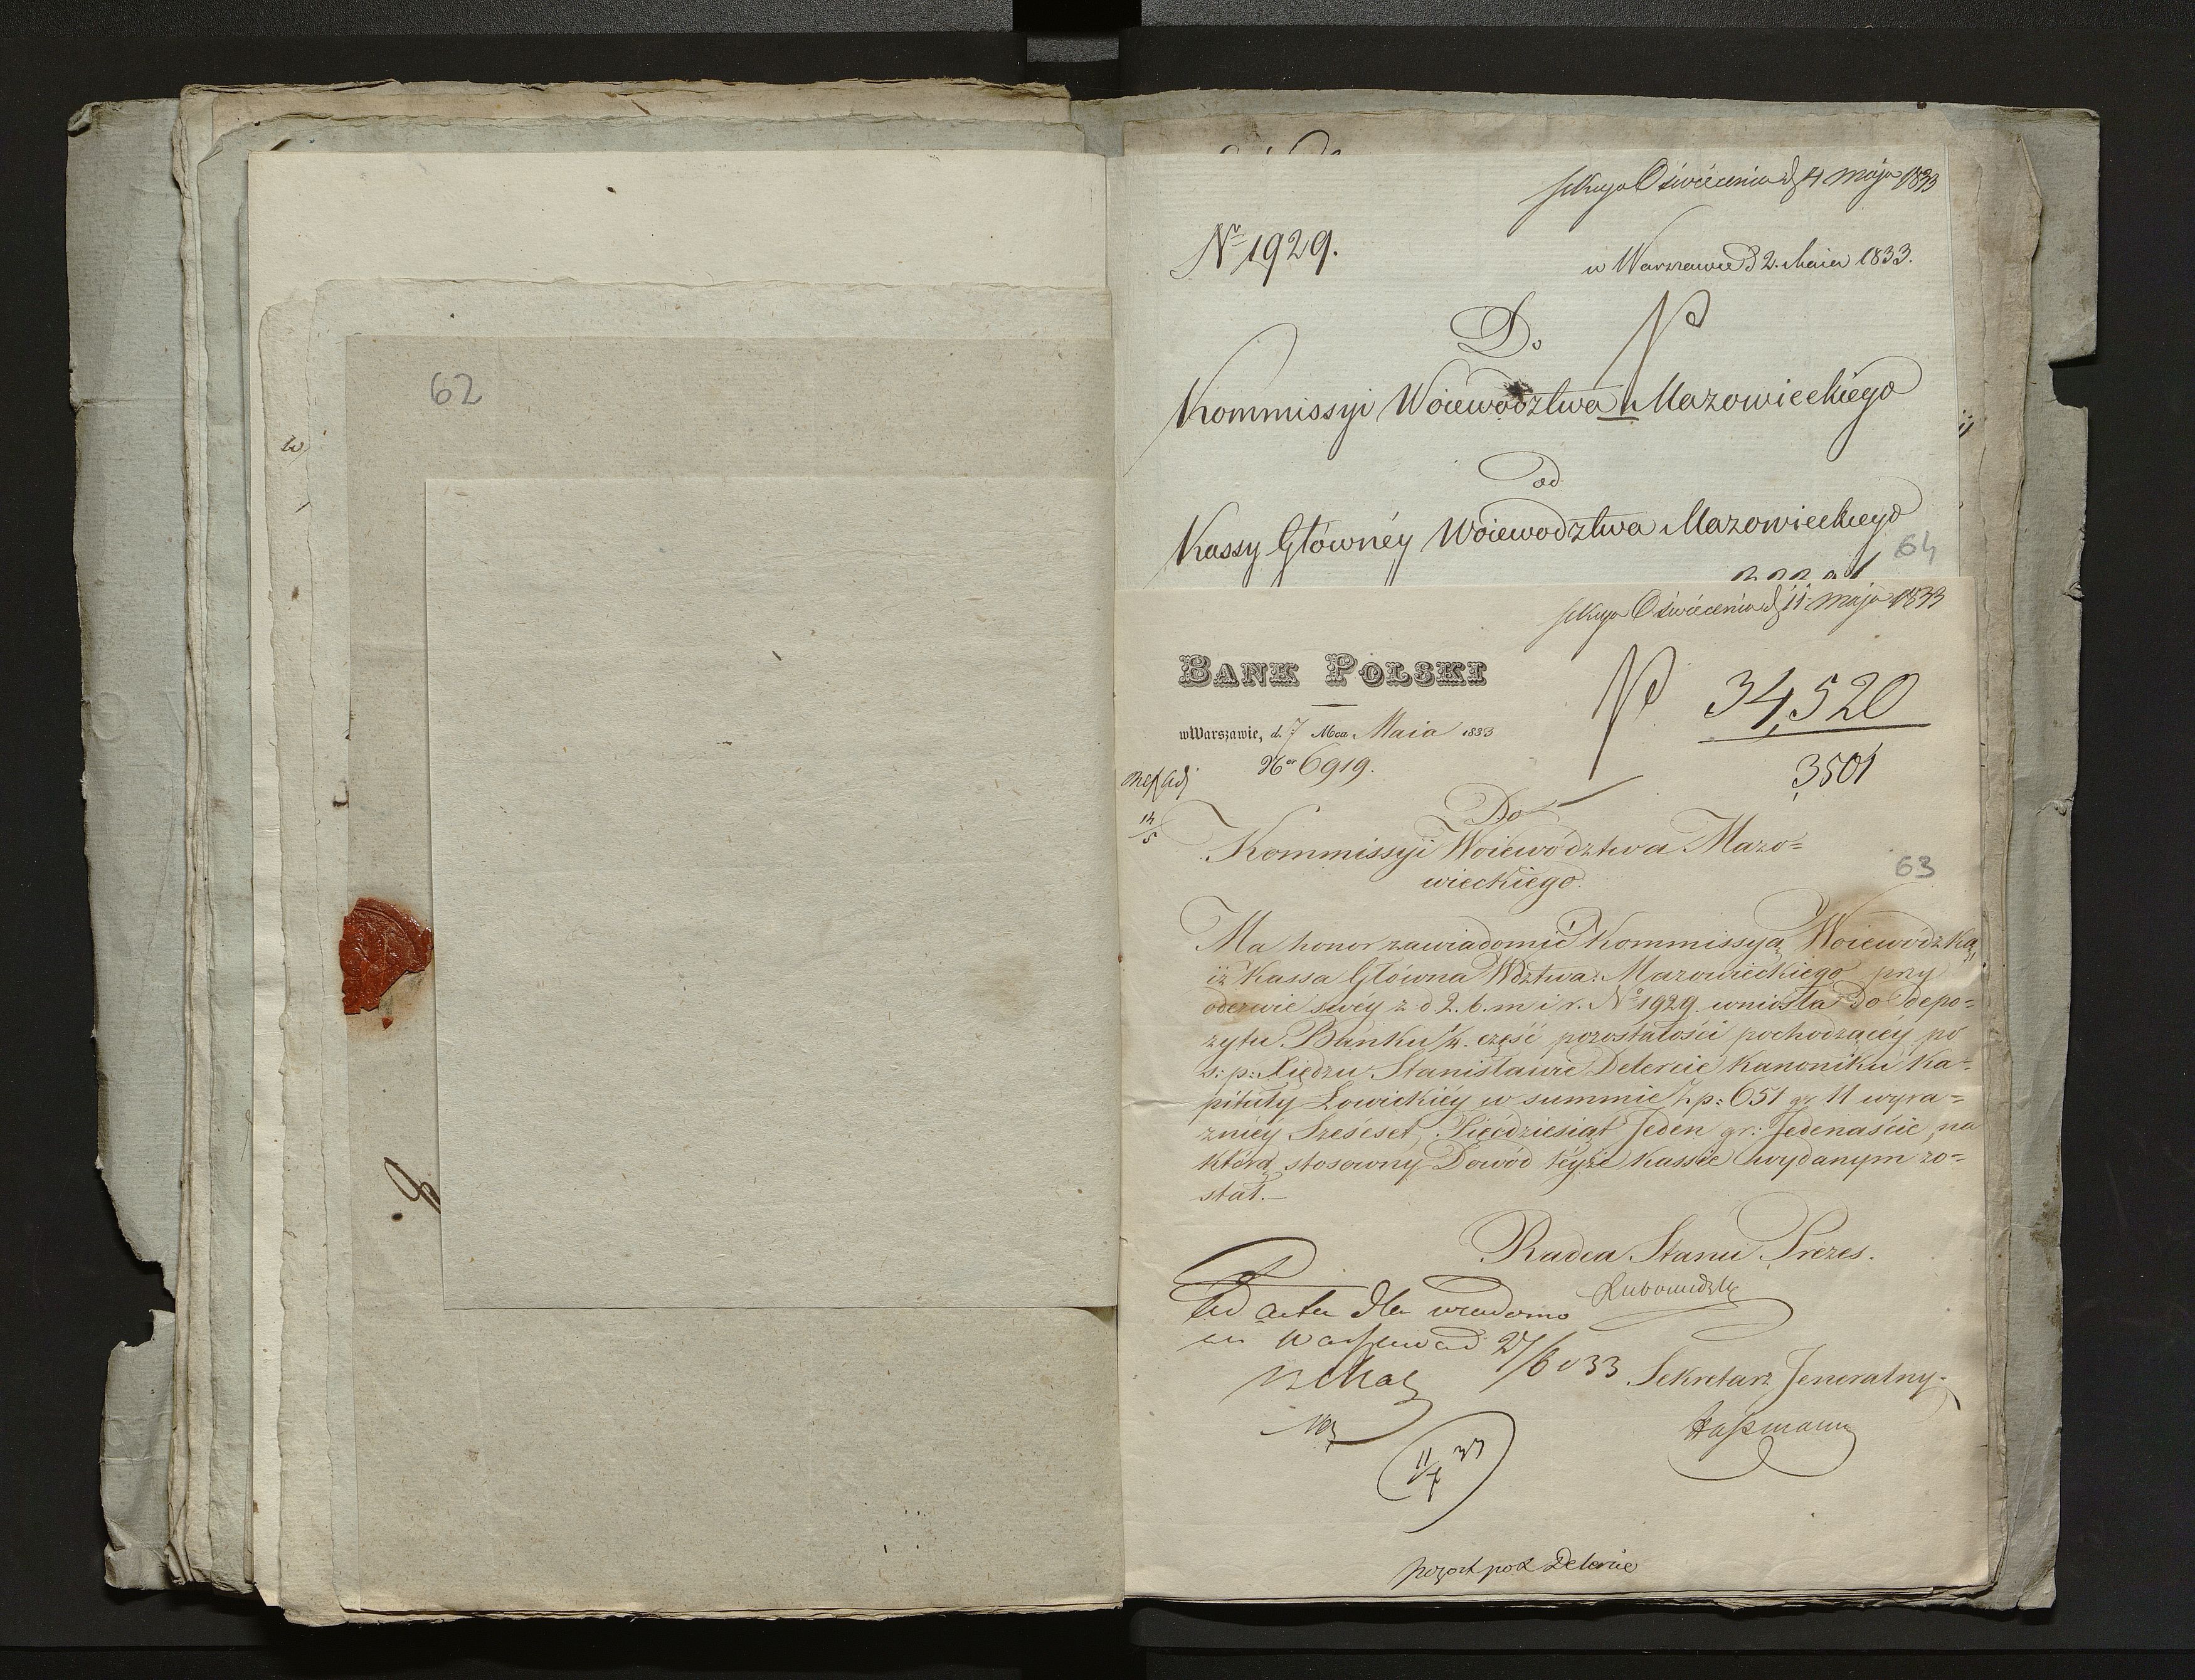 62
Sekcya Oświecenia d 4 Maja 1833
Nr 1929.
w Warszawie d 2. Maia 1833.
Do
Kommissyi Woiewodztwa Mazowieckiego
od
Kassy Główney Woiewodztwa Mazowieckiego
64
Sekcya Oświecenia d 11 Maja 1833
BANK POLSKI
34,520
w Warszawie, d. 7 Mca Maia 1833
Nor 6919.
3501
14/5
Do
Kommissyi Woiewództwa Mazo=
wieckiego.
63
Ma honor zawiadomić Kommissyą Woiewodzką,
iż Kassa Główna Wdztwa: Mazowieckiego przy
odezwie swéy z d 2. b. m i r. No 1929. wniosła do depo=
zytu Banku 1/4. część pozostałości pochodzącéy po
ś: p: Xiędzu Stanisławie Delercie Kanoniku Ka=
pituły Łowickiéy w summie Zp: 651 gr 11 wyra=
zniey Sześćset Pięćdziesiąt Jeden gr: Jedenaście, na
którą stosowny Dowód teyże Kassie wydanym zo=
stał.
Radca Stanu Prezes.
Lubowidzki
Ad acta dla wiadomo
27/6 833
Sekretarz Jeneralny.
Hassmann
11/7 33
pozost po X Delercie